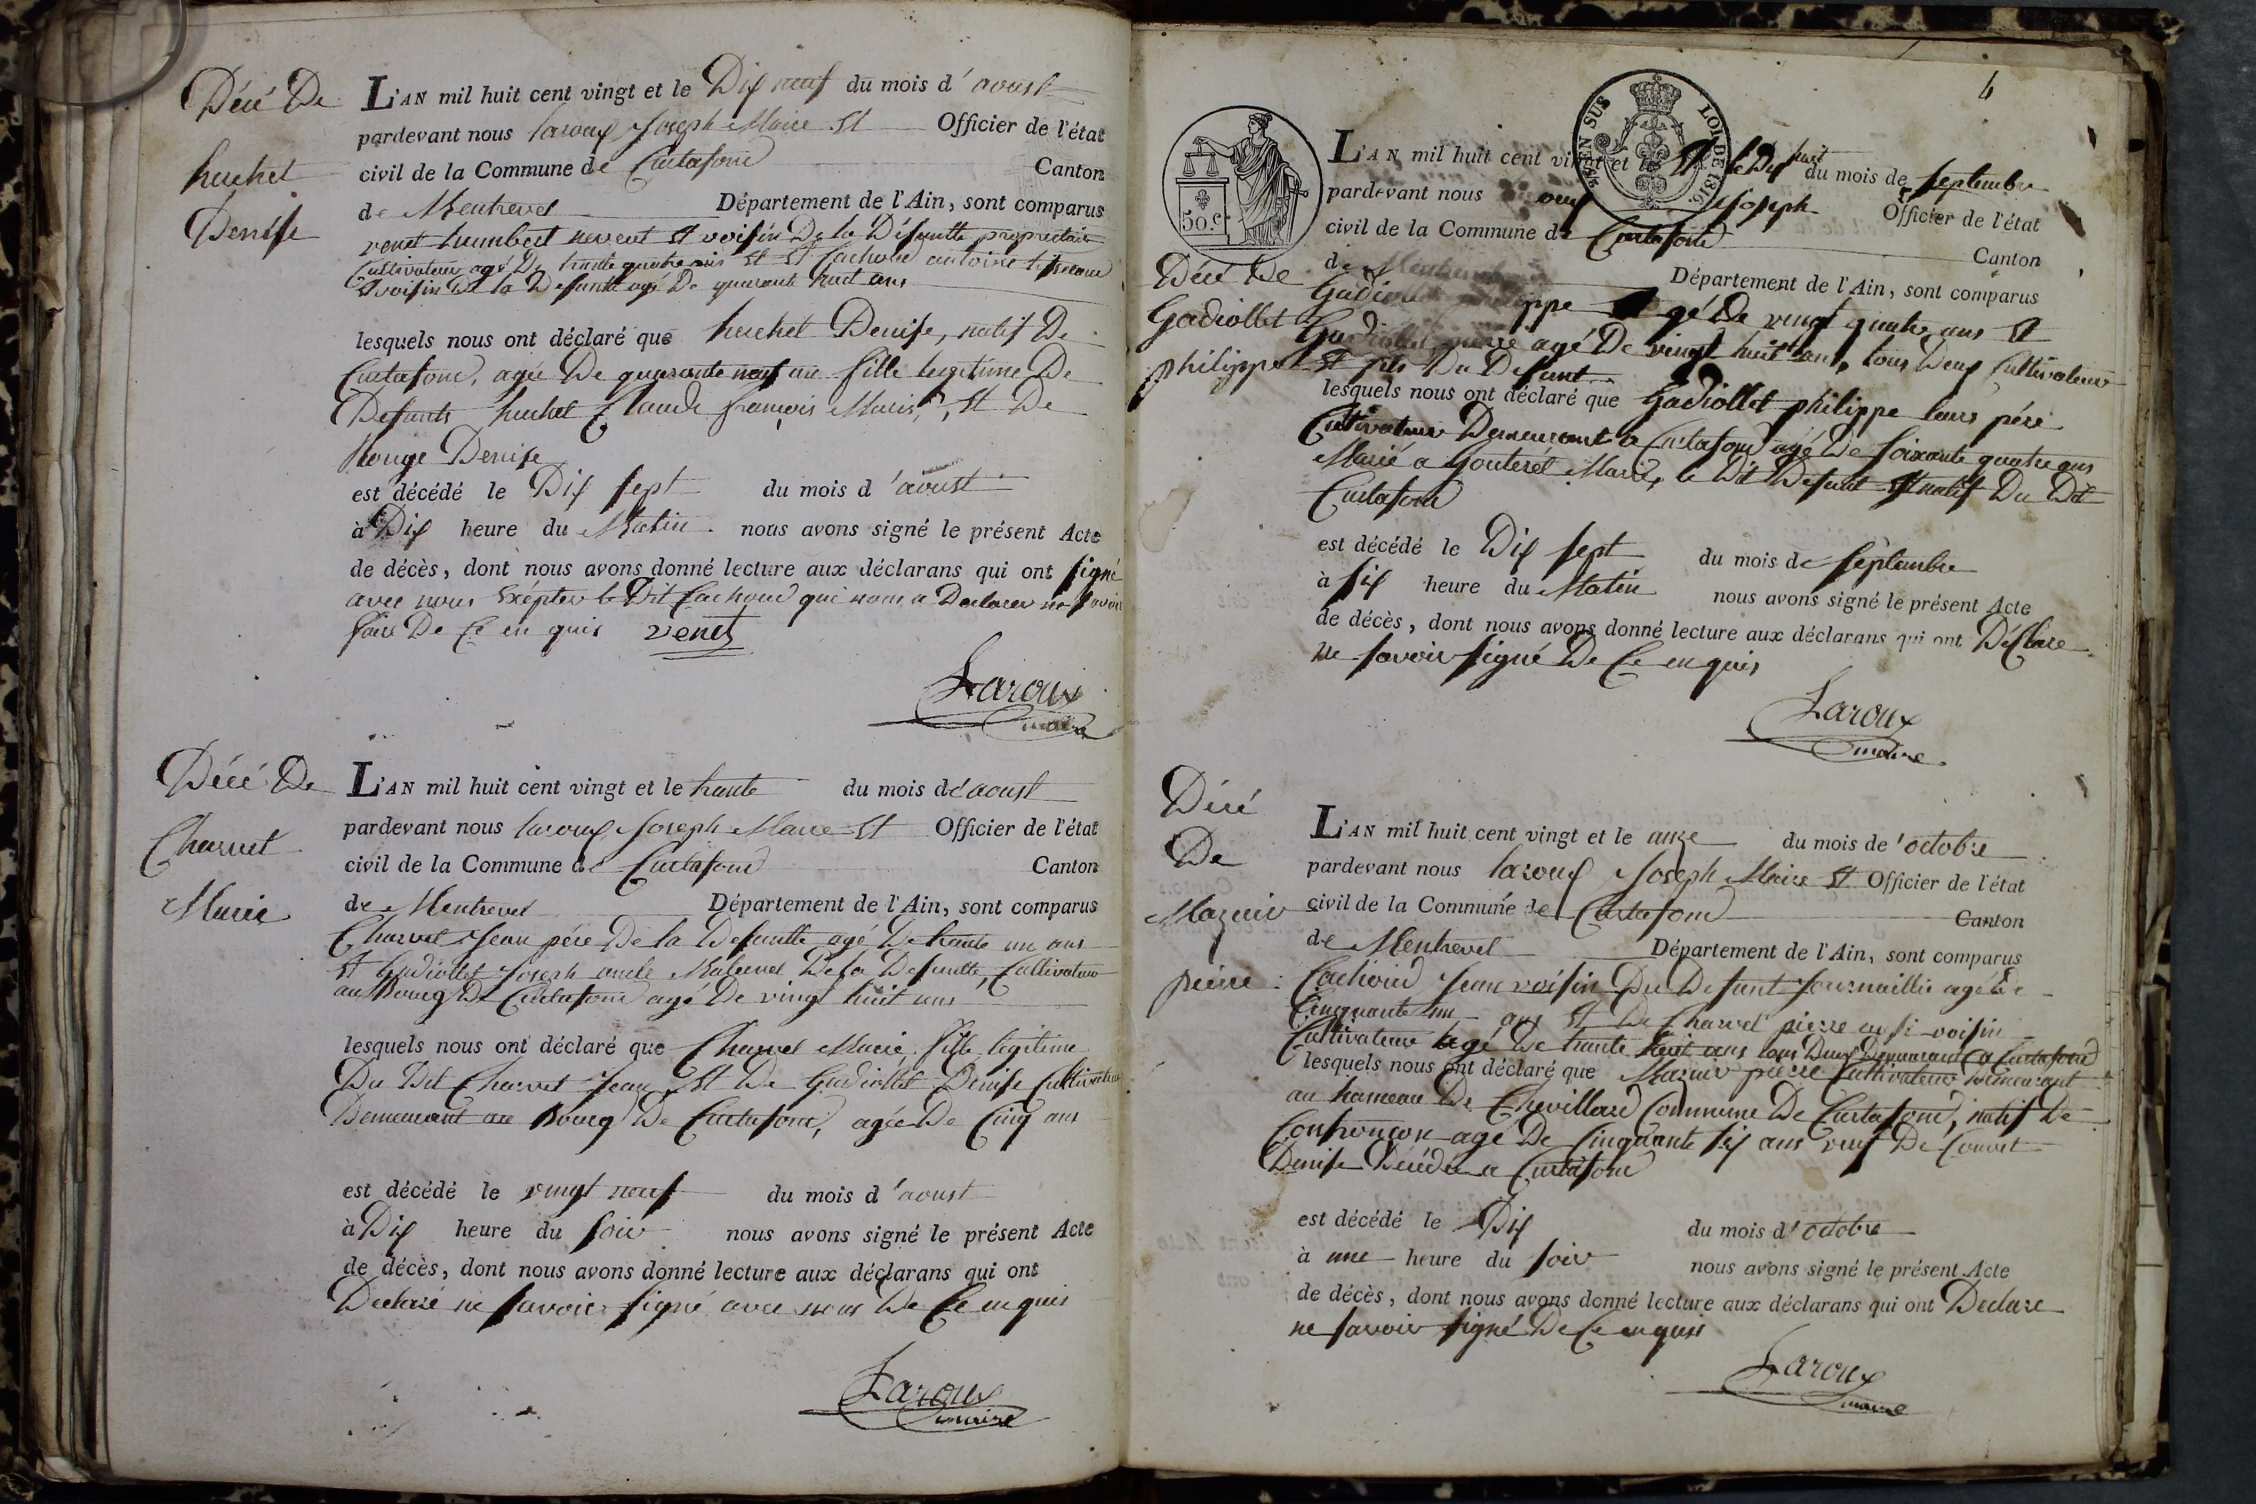 Décé De
huchet
Denise
L'AN mil huit cent vingt et le Dix neuf du mois d'aoust
pardevant nous laroux Joseph Maire et Officier de l'état
civil de la Commune de Curtafond Canton
de Montrevel Département de l'Ain, sont comparus
venet humbert neveut et voisin De la Défuntte propriettaire
Cultivateur agé De trante quatre ans et et Cachoud antoine
voisin De la Defuntte agé De quarante huit ans
lesquels nous ont déclaré que huchet Denise, natif De
Curtafond, agée De quarante neuf an fille legitime De
Defunts huchet Claude françois Marie, et De
Rouge Denise
est décédé le Dix sept du mois d'aoust
à Dix heure du Matin nous avons signé le présent Acte
de décès, dont nous avons donné lecture aux déclarans qui ont signé
avec nous Exépter le Dit Cachoud qui nous a Declarer ne savoir
faire De Ce en quis venet
Laroux
maire
Décé De
Charvet
Marie
L'AN mil huit cent vingt et le trante du mois d'aoust
pardevant nous laroux Joseph Maire et Officier de l'état
civil de la Commune de Curtafond Canton
de Montrevel Département de l'Ain, sont comparus
Charvet Jean pére De la Defuntte agé De trante un ans
et Gadiollet Joseph oncle Maternel De la Defuntte, Cultivateur
au Bourg De Curtafond agé De vingt huit ans
lesquels nous ont déclaré que Charvet Marie fille legitime
Du Dit Charvet Jean et De Gadiollet Denise Cultivateur
Demeurant au Bourg De Curtafond, agée De Cinq ans
est décédé le vingt neuf du mois d'aoust
à Dix heure du soir nous avons signé le présent Acte
de décès, dont nous avons donné lecture aux déclarans qui ont
Declaré ne savoir signé avec nous De Ce en quis
Laroux
maire
4
EN SUS LOI DE 1816.
50 c.
Décé De
Gadiollet
philippe
L'AN mil huit cent vingt et le Dix huit du mois de septembre
pardevant nous Joseph Officier de l'état
civil de la Commune de Curtafond Canton
de Département de l'Ain, sont comparus
Gadiollet philippe agé De vingt quatre ans et
Gadiollet agé De vingt huit ans, tous Deux Cultivateur
et fils Du Defunt
lesquels nous ont déclaré que Gadiollet philippe leurs pére
Cultivateur Demeurant a Curtafond agé De soixante quatre ans
Marié a Gouterét Marie, le Dit Defunt et natif Du Dit
Curtafond
est décédé le Dix sept du mois de septembre
à six heure du Matin nous avons signé le présent Acte
de décès, dont nous avons donné lecture aux déclarans qui ont Déclare
ne savoir signé De Ce en quis
Laroux
maire
Décé
De
Mazuir
pierre
L'AN mil huit cent vingt et le onze du mois de'octobre
pardevant nous laroux Joseph Maire et Officier de l'état
civil de la Commune de Curtafond Canton
de Montrevel Département de l'Ain, sont comparus
Cachoud Jean voisin Du Defunt Journaillié agé De
Cinquante un ans et De Charvet pierre aussi voisin
Cultivateur agé De trante huit ans tous Deux Demeurant a Curtafond
lesquels nous ont déclaré que Mazuir pierre Cultivateur Demeurant
au hameau De Chevillard Commune De Curtafond, natif De
Confrançon agé De Cinquante six ans veuf De Convert
Denise Décédée a Curtafond
est décédé le Dix du mois d'octobre
à une heure du soir nous avons signé le présent Acte
de décès, dont nous avons donné lecture aux déclarans qui ont Declare
ne savoir signé De Ce en quis
Laroux
maire